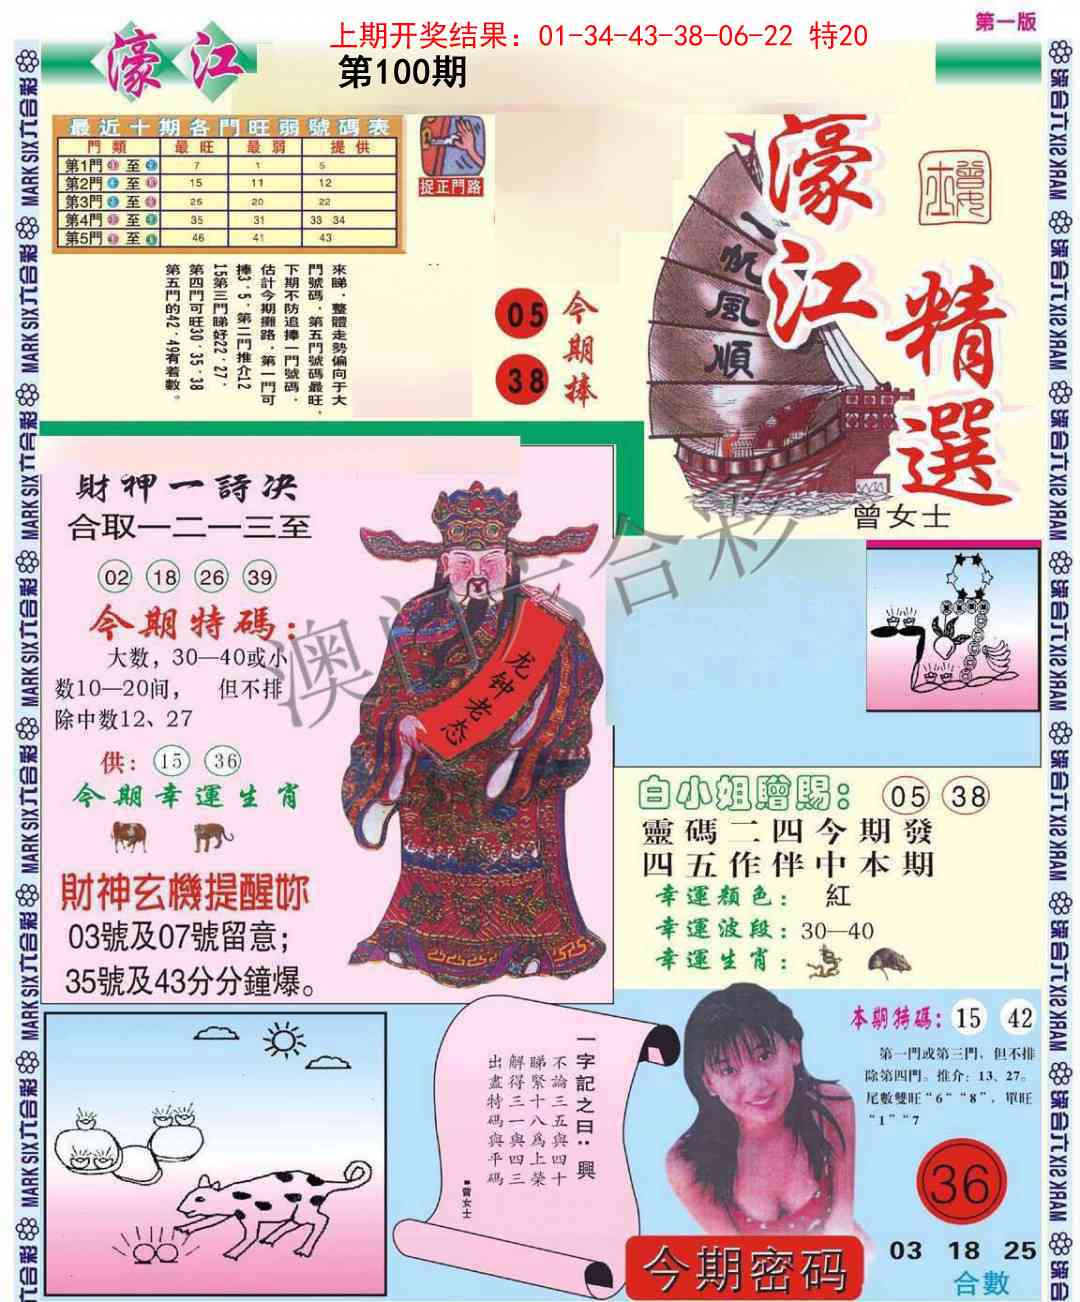 上期开奖结果：01-34-43-38-06-22 特20
第一版
濠江
第100期
最近十期各門旺弱號碼表
門類 最旺 最弱 提供
第1門 至 7 1 5
第2門 至 15 11 12
第3門 至 26 20 22
第4門 至 35 31 33 34
第5門 至 46 41 43
捉正門路
來睇，整體走勢偏向于大
門號碼，第五門號碼最旺，
下期不防追捧一門號碼，
估計今期攤路，第一門可
捧3·5，第二門推介12
15第三門睇好22·27，
第四門可旺30·35·38
第五門的42·49有着數。
05
38
今期捧
一帆風順
濠江
精選
曾女士
財神一詩决
合取一二一三至
02 18 26 39
今期特碼：
大数，30—40或小
数10—20间， 但不排
除中数12、27
供： 15 36
今期幸運生肖
財神玄機提醒妳
03號及07號留意；
35號及43分分鐘爆。
龙钟老态
澳门六合彩
白小姐贈賜： 05 38
靈碼二四今期發
四五作伴中本期
幸運顏色： 紅
幸運波段：30—40
幸運生肖：
一字記之曰：興
不論三五與四十
睇緊十八爲上榮
解得三一與四三
出盡特碼與平碼
■曾女士
本期特碼：15 42
第一門或第三門，但不排
除第四門。推介：13、27。
尾數雙旺“6“ “8”，單旺
“1”“7
36
今期密码
03 18 25
合數
MARK SIX 六合彩